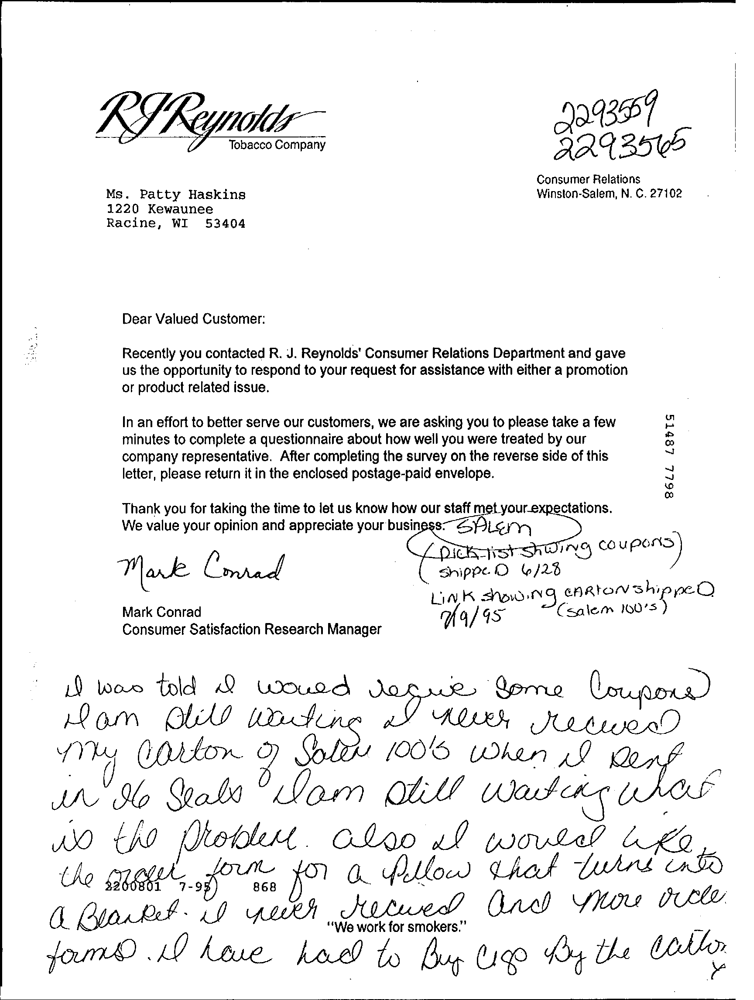 RJReynolds
Tobacco Company
2293559
2293565
Consumer Relations
Winston-Salem, N. C. 27102
Ms. Patty Haskins
1220 Kewaunee
Racine, WI 53404
Dear Valued Customer:
Recently you contacted R. J. Reynolds' Consumer Relations Department and gave
us the opportunity to respond to your request for assistance with either a promotion
or product related issue.
In an effort to better serve our customers, we are asking you to please take a few
minutes to complete a questionnaire about how well you were treated by our
company representative. After completing the survey on the reverse side of this
letter, please return it in the enclosed postage-paid envelope.
51487 7798
Thank you for taking the time to let us know how our staff met your expectations.
We value your opinion and appreciate your business.
SALEM
(Pick list shwing coupons)
shippeD 6/28
Link showing cARton shippeD
7/19/95 (salem 100's)
Mark Conrad
Mark Conrad
Consumer Satisfaction Research Manager
I was told I would some Coupons
I am still waiting I never
my carton of 100's when I sent
in 26 Seals I am still waiting what
is the problem. also I would like
the order form for a pillow that turns into
2200801 7-95 868
a Blanket. I never and more
"We work for smokers."
forms. I have had to Buy Cigs By the carton